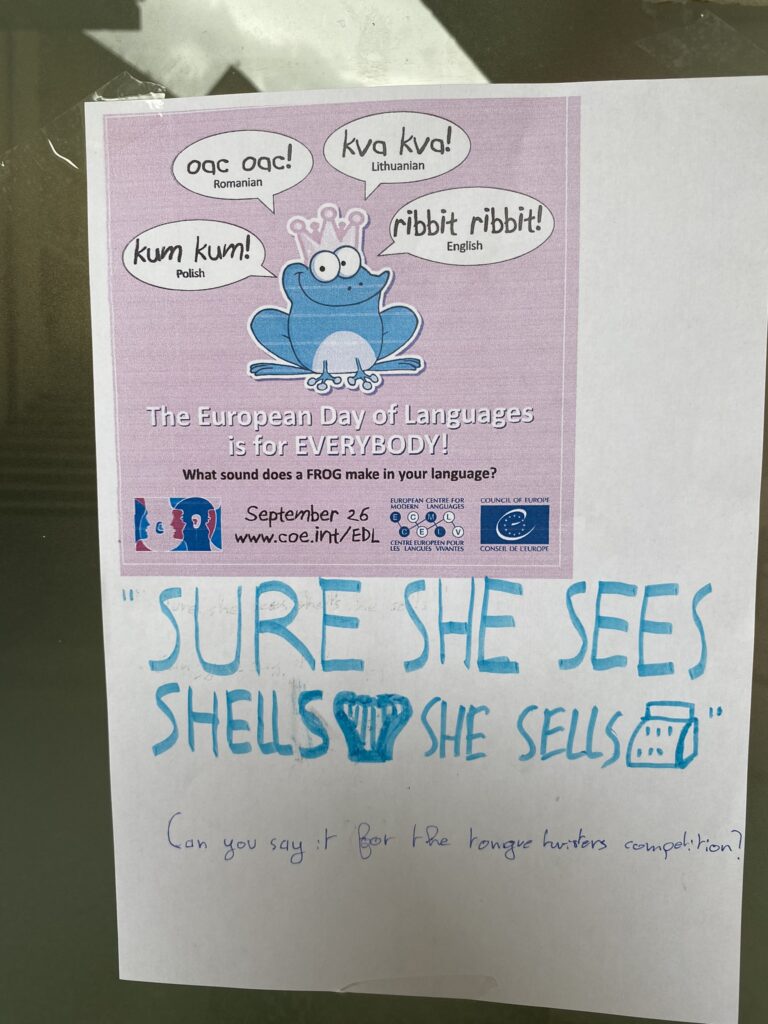 oac oac!
Romanian
kva kva!
Lithuanian
ribbit ribbit!
English
kum kum!
Polish
The European Day of Languages
is for EVERYBODY!
What sound does a FROG make in your language?
September 26
www.coe.int/EDL
EUROPEAN CENTRE FOR
MODERN LANGUAGES
E C M L
C E L V
CENTRE EUROPEEN POUR
LES LANGUES VIVANTES
COUNCIL OF EUROPE
CONSEIL DE L'EUROPE
"SURE SHE SEES
SHELLS SHE SELLS"
Can you say it for the tongue twisters competition?